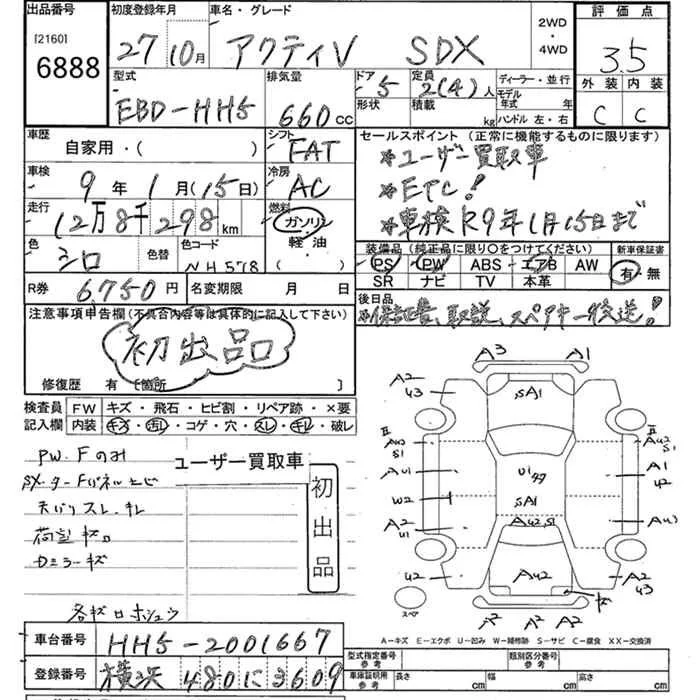 出品番号
[2160]
6888
初度登録年月
27 10月
車名・グレード
アクティV SDX
2WD
・
4WD
評価点
3.5
外装 内装
C C
型式
EBD-HH5
排気量
660 CC
ドア 5
形状
定員 2(4)人
積載 kg
ディーラー・並行
モデル
年式 年
ハンドル 左・右
車歴
自家用・( )
シフト
FAT
車検
9年 1月(15日)
冷房
AC
走行
12万8千298km
燃料
ガソリン
軽・油
( )
色
シロ
色替
色コード
NH578
R券 6,750円
名変期限 月 日
セールスポイント (正常に機能するものに限ります)
*ユーザー買取車
*ETC!
*車検R9年1月15日まで
装備品(純正品に限り○をつけてください)
PS PW ABS エアB AW
SR ナビ TV 本革
新車保証書
有・無
後日品
*保証書、取説、スペアキー後送!
注意事項申告欄(不具合内容等は具体的に記入して下さい)
初出品
修復歴 有 〔箇所 〕
検査員
記入欄
FW キズ・飛石・ヒビ割・リペア跡・×要
内装 キズ・汚レ・コゲ・穴・スレ・キレ・破レ
PW.Fのみ
ユーザー買取車
初出品
天バリスレ.キレ
荷室キズ
Dミラーキズ
A3 A1
A2
43
SA1
II
S1
A42
S1
A41
A1
42
U1
SA1
W2
A2
U1
A42.S1
A43
42
A42
A2
43
スペア
A2 A2 A2
A-キズ E-エクボ U-凹み W-補修跡 S-サビ C-腐食 XX-交換済
車台番号 HH5-2001667
登録番号 横浜 480に3609
型式指定番号
参考
類別区分番号
参考
車庫証明用
参考
長さ cm
幅 cm
高さ cm